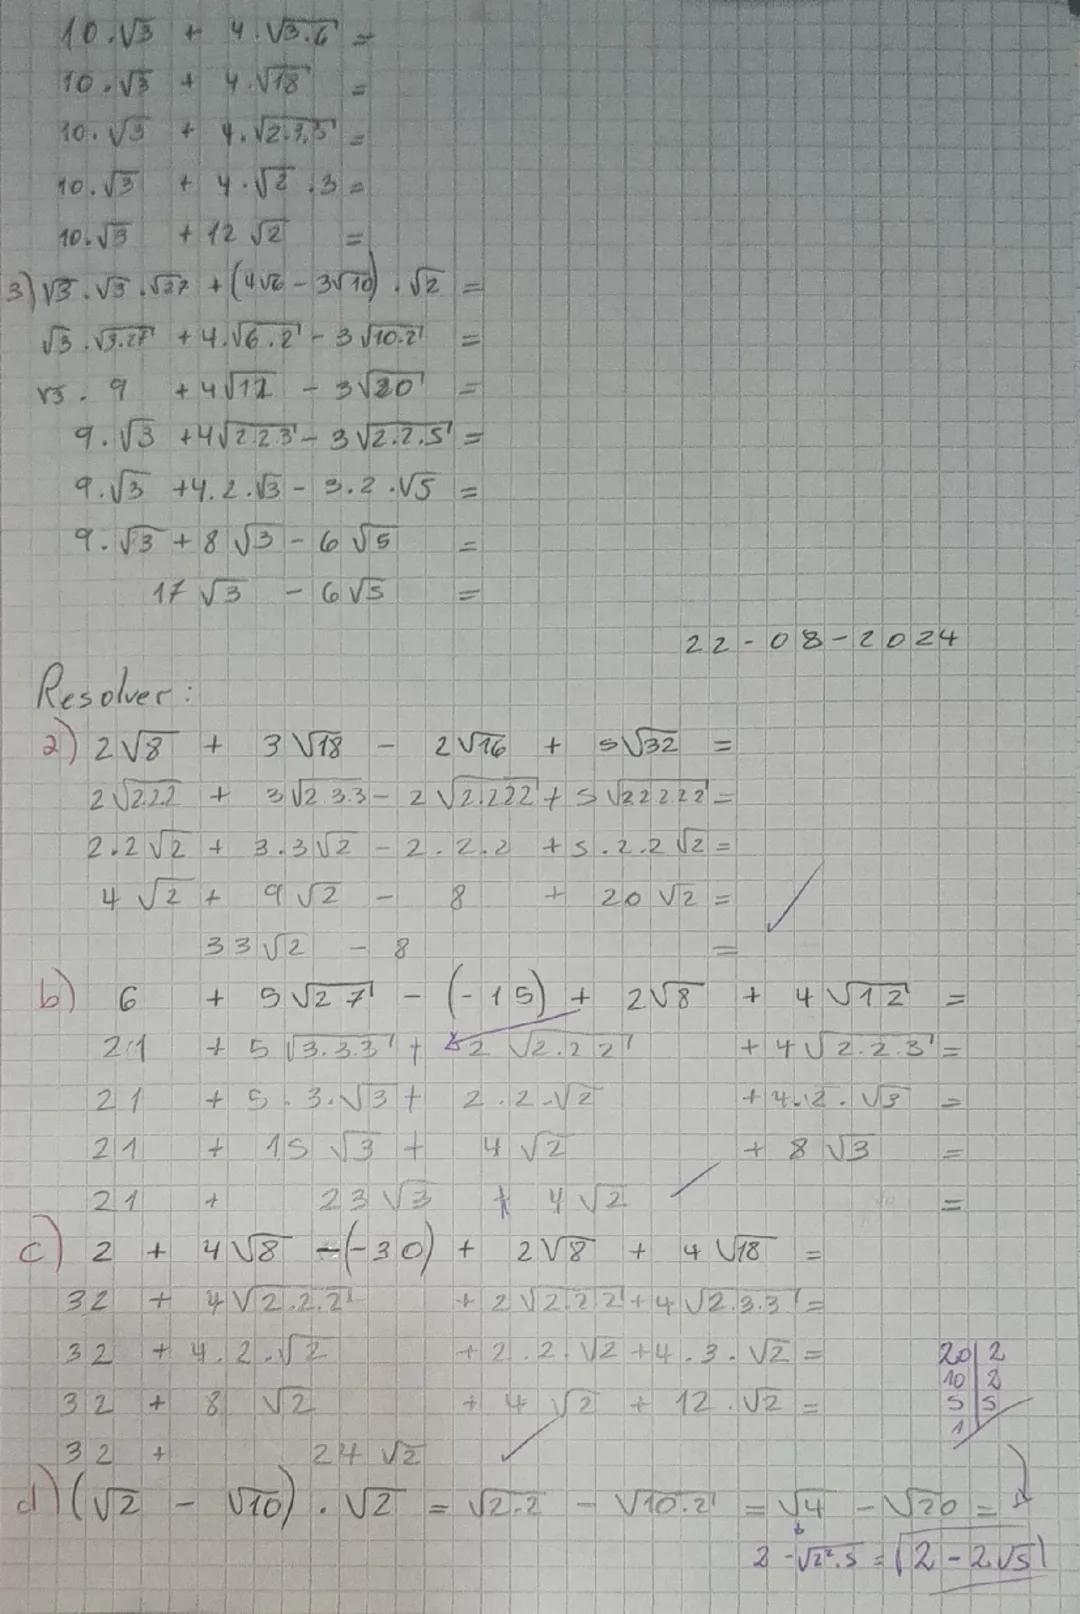 10.√3 + 4.√3.6 =
10.√3 + 4.√18 =
10.√3 + 4.√2.3.3 =
10.√3 + 4.√2 .3 =
10.√3 + 12 √2 =
3) √3.√3.√27 + (4√6 - 3√10) . √2 =
√3.√3.27 + 4.√6.2 - 3√10.2 =
√3. 9 + 4√12 - 3√20 =
9.√3 + 4√2.2.3 - 3√2.2.5 =
9.√3 + 4.2.√3 - 3.2.√5 =
9.√3 + 8√3 - 6√5 =
17√3 - 6√5 =
22-08-2024
Resolver:
a) 2√8 + 3√18 - 2√16 + 5√32 =
2√2.2.2 + 3√2.3.3 - 2√2.222 + 5√22222 =
2.2√2 + 3.3√2 - 2.2.2 + 5.2.2√2 =
4√2 + 9√2 - 8 + 20√2 =
33√2 - 8 =
b) 6 + 5√27 - (-15) + 2√8 + 4√12 =
21 + 5√3.3.3 + 2√2.2 2 + 4√2.2.3 =
21 + 5.3.√3 + 2.2.√2 + 4.2.√3 =
21 + 15√3 + 4√2 + 8√3 =
21 + 23√3 + 4√2 =
c) 2 + 4√8 - (-30) + 2√8 + 4√18 =
32 + 4√2.2.2 + 2√2.2 2 + 4√2.3.3 =
32 + 4.2.√2 + 2.2.√2 + 4.3.√2 =
32 + 8√2 + 4√2 + 12.√2 =
32 + 24√2
20|2
10|2
5|5
1
d) (√2 - √10) . √2 = √2.2 - √10.2 = √4 - √20 =
2 - √2².5 = 2 - 2√5